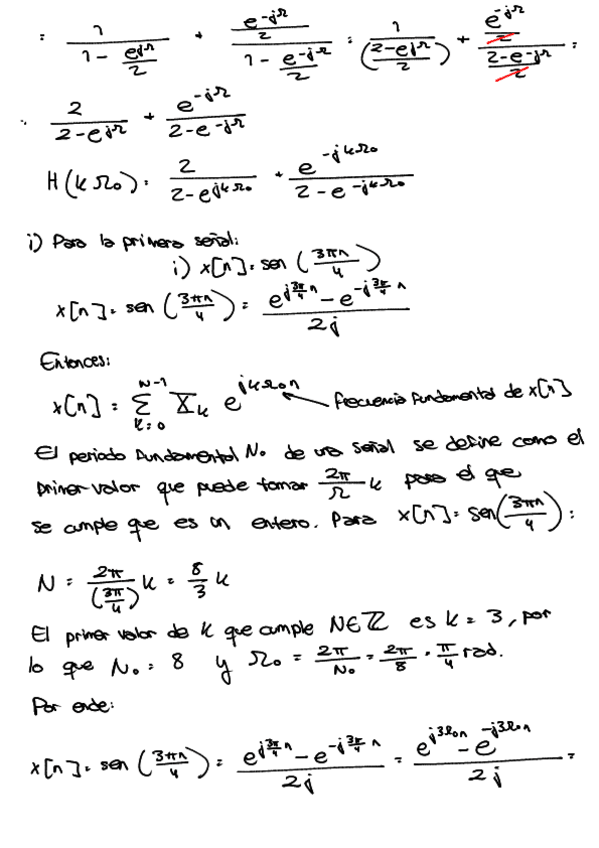 = 1/(1 - e^{jΩ}/2) + (e^{-jΩ}/2)/(1 - e^{-jΩ}/2) = 1/((2-e^{jΩ})/2) + (e^{-jΩ}/2)/((2-e^{-jΩ})/2) =
= 2/(2-e^{jΩ}) + e^{-jΩ}/(2-e^{-jΩ})
H(kΩ₀) = 2/(2-e^{jkΩ₀}) + e^{-jkΩ₀}/(2-e^{-jkΩ₀})
i) Para la primera señal:
i) x[n] = sen (3πn/4)
x[n] = sen (3πn/4) = (e^{j3π/4 n} - e^{-j3π/4 n})/2j
Entonces:
x[n] = Σ_{k=0}^{N-1} X_k e^{jkΩ₀n} ← frecuencia fundamental de x[n]
El periodo fundamental N₀ de una señal se define como el
primer valor que puede tomar 2π/Ω k para el que
se cumple que es un entero. Para x[n] = sen(3πn/4):
N = 2π/(3π/4) k = 8/3 k
El primer valor de k que cumple N∈ℤ es k = 3, por
lo que N₀ = 8 y Ω₀ = 2π/N₀ = 2π/8 = π/4 rad.
Por ende:
x[n] = sen (3πn/4) = (e^{j3π/4 n} - e^{-j3π/4 n})/2j = (e^{j3Ω₀n} - e^{-j3Ω₀n})/2j =